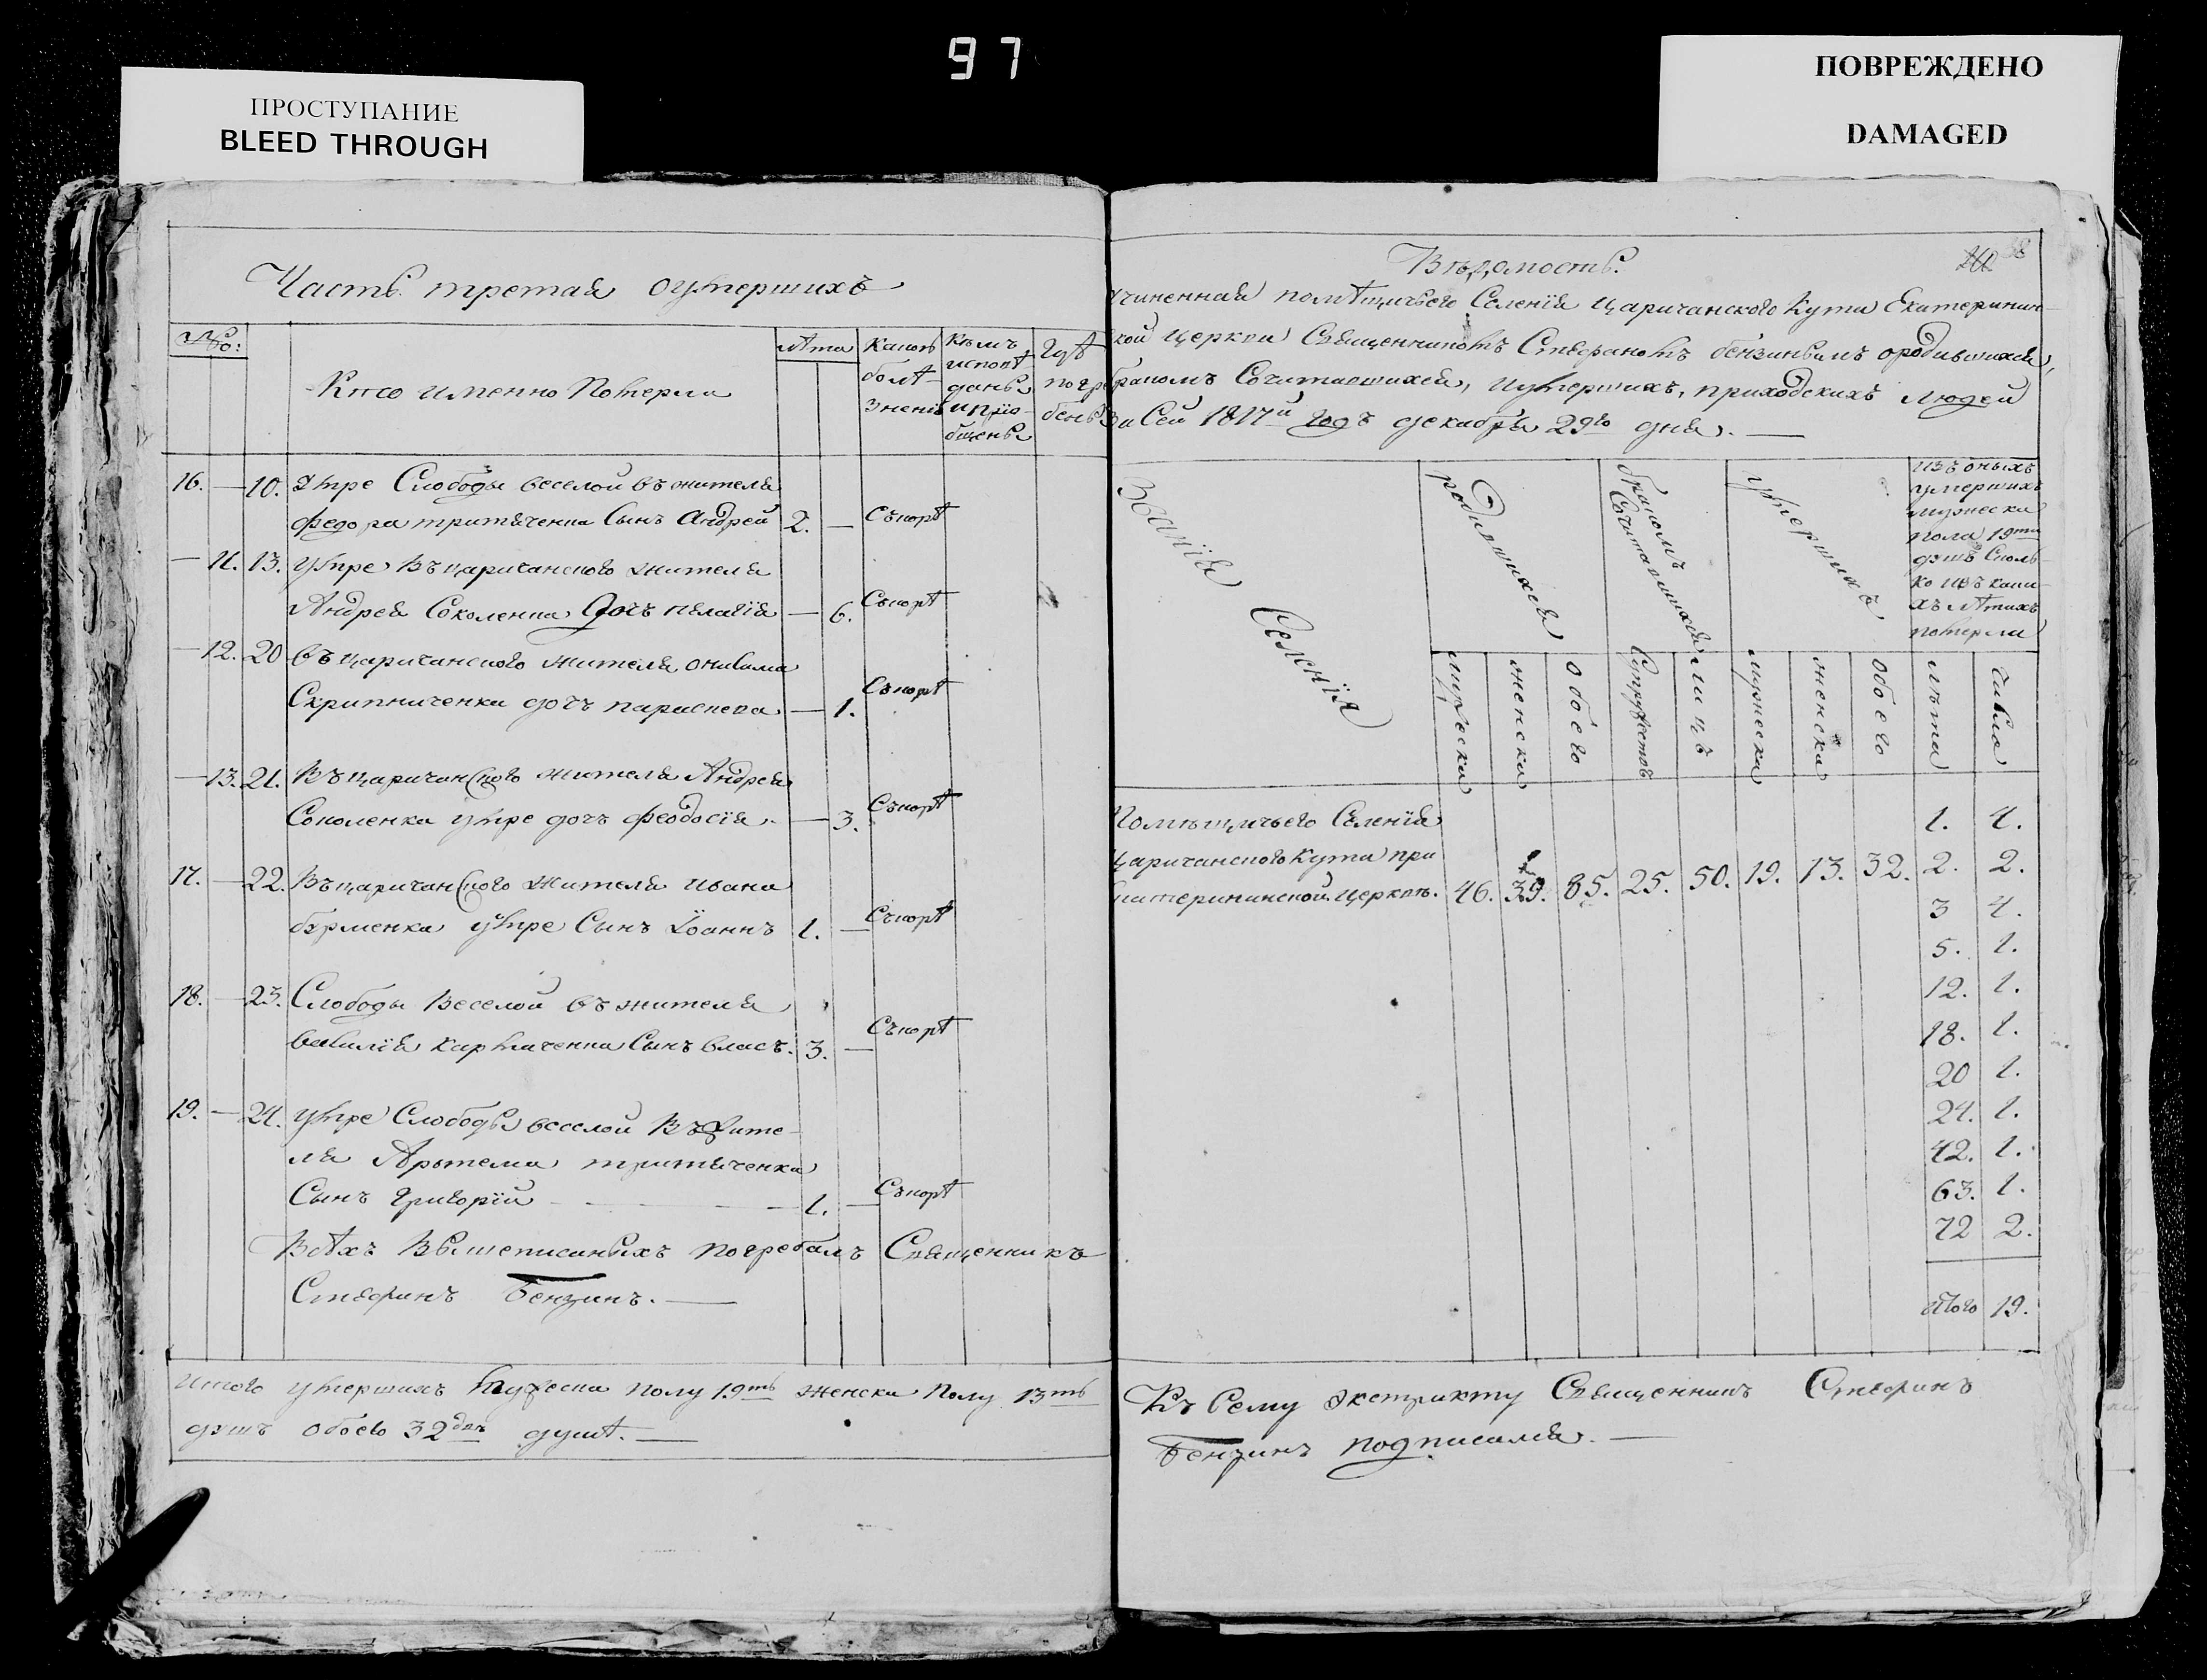 97
ПРОСТУПАНИЕ
BLEED THROUGH
ПОВРЕЖДЕНО
DAMAGED
Часть третая оумершихъ
Кто именно Померли
лѣта
Какою болѣзнею
Кѣмъ исповѣданы и пріобщены
Гдѣ погребены
16. — 10. Умре Слободы веселой въ жителя
Федора тритяченка Сынъ Андрей 2. — Съкорѣ
— 11. 13. Умре Въцаричанского жителя
Андрея Соколенка Дочь пелагія — 6. Съкорѣ
— 12. 20 Въцаричанского жителя онисима
Скрипниченка дочь параскева — 1. Съкорѣ
— 13. 21. Въцаричанского жителя Андрея
Соколенка умре дочь феодосія — 3. Съкорѣ
17. — 22. Въцаричанского жителя ивана
умре Сынъ Іоаннъ 1. — Съкорѣ
18. — 23. Слободы Веселой въ жителя
василія Сынъ власъ. 3. — Съкорѣ
19. — 24. умре Слободы веселой Въ жите-
ля Артема тритяченка
Сынъ григорій 1. — Съкорѣ
Всѣхъ Вышеписаныхъ погребалъ Священникъ
Стефанъ Бензинъ. —
Итого умершихъ мужеска полу 19ть женска полу 13ть
душъ обоево 32двѣ душѣ. —
Вѣдомость.
чиненная помѣщичьего Селенія Царичанского Кута Екатеринин-
кой церкви Священникомъ Стефаномъ бензинымъ ородившихся,
бракомъ Сочитавшихся, иумершихъ, приходскихъ людей
За Сей 1817й годъ декабря 29го дня. —
Званія Селенія
родившихся
бракомъ Сочитавшихся
умершихъ
изъ оныхъ
умершихъ
мужеска
пола 19ти
душъ Сколь-
ко изъ каки-
хъ лѣтахъ
померли
мужеска
женска
обоего
Супружествъ
лицъ
мужеска
женска
обоего
лѣта
число
Помѣщичьего Селенія
Царичанского Кута при
катерининской церкви. 46. 39. 85. 25. 50. 19. 13. 32.
1. 4.
2. 2.
3 4.
5. 1.
12. 1.
18. 1.
20 1.
24. 1.
42. 1.
63. 1.
72 2.
Итого 19.
Къ Сему экстракту Священникъ Стефанъ
Бензинъ подписался. —